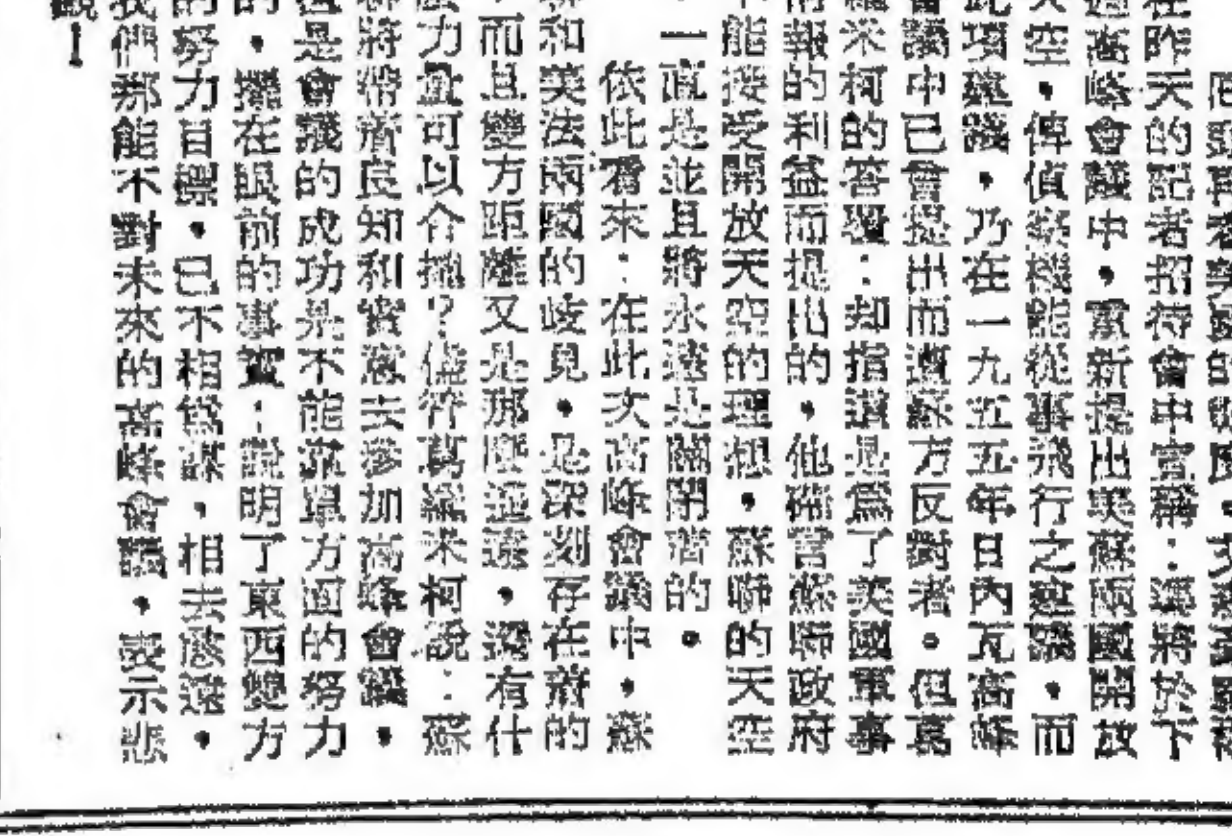 在昨天的記者招待會中宣稱：將於下
過高峰會議中，重新提出美蘇兩國開放
天空，俾偵察機能從事飛行之建議。而
此項建議，乃在一九五五年日內瓦高峰
會議中已曾提出而遭蘇方反對者。但葛
羅米柯的答覆：却指這是爲了美國軍事
情報的利益而提出的，他確言蘇聯政府
不能接受開放天空的理想，蘇聯的天空
，一直是並且將永遠是關閉着的。
依此看來：在此次高峰會議中，蘇
聯和美法兩國的歧見，是深刻存在着的
，而且雙方距離又是那麼遙遠，還有什
力量可以介擋？儘管葛羅米柯說：蘇
聯將帶着良知和實意去參加高峰會議，
但是會議的成功是不能靠單方面的努力
的，擺在眼前的事實：說明了東西雙方
的努力目標，已不相爲謀，相去愈遠，
我們那能不對未來的高峰會議，表示悲
觀！